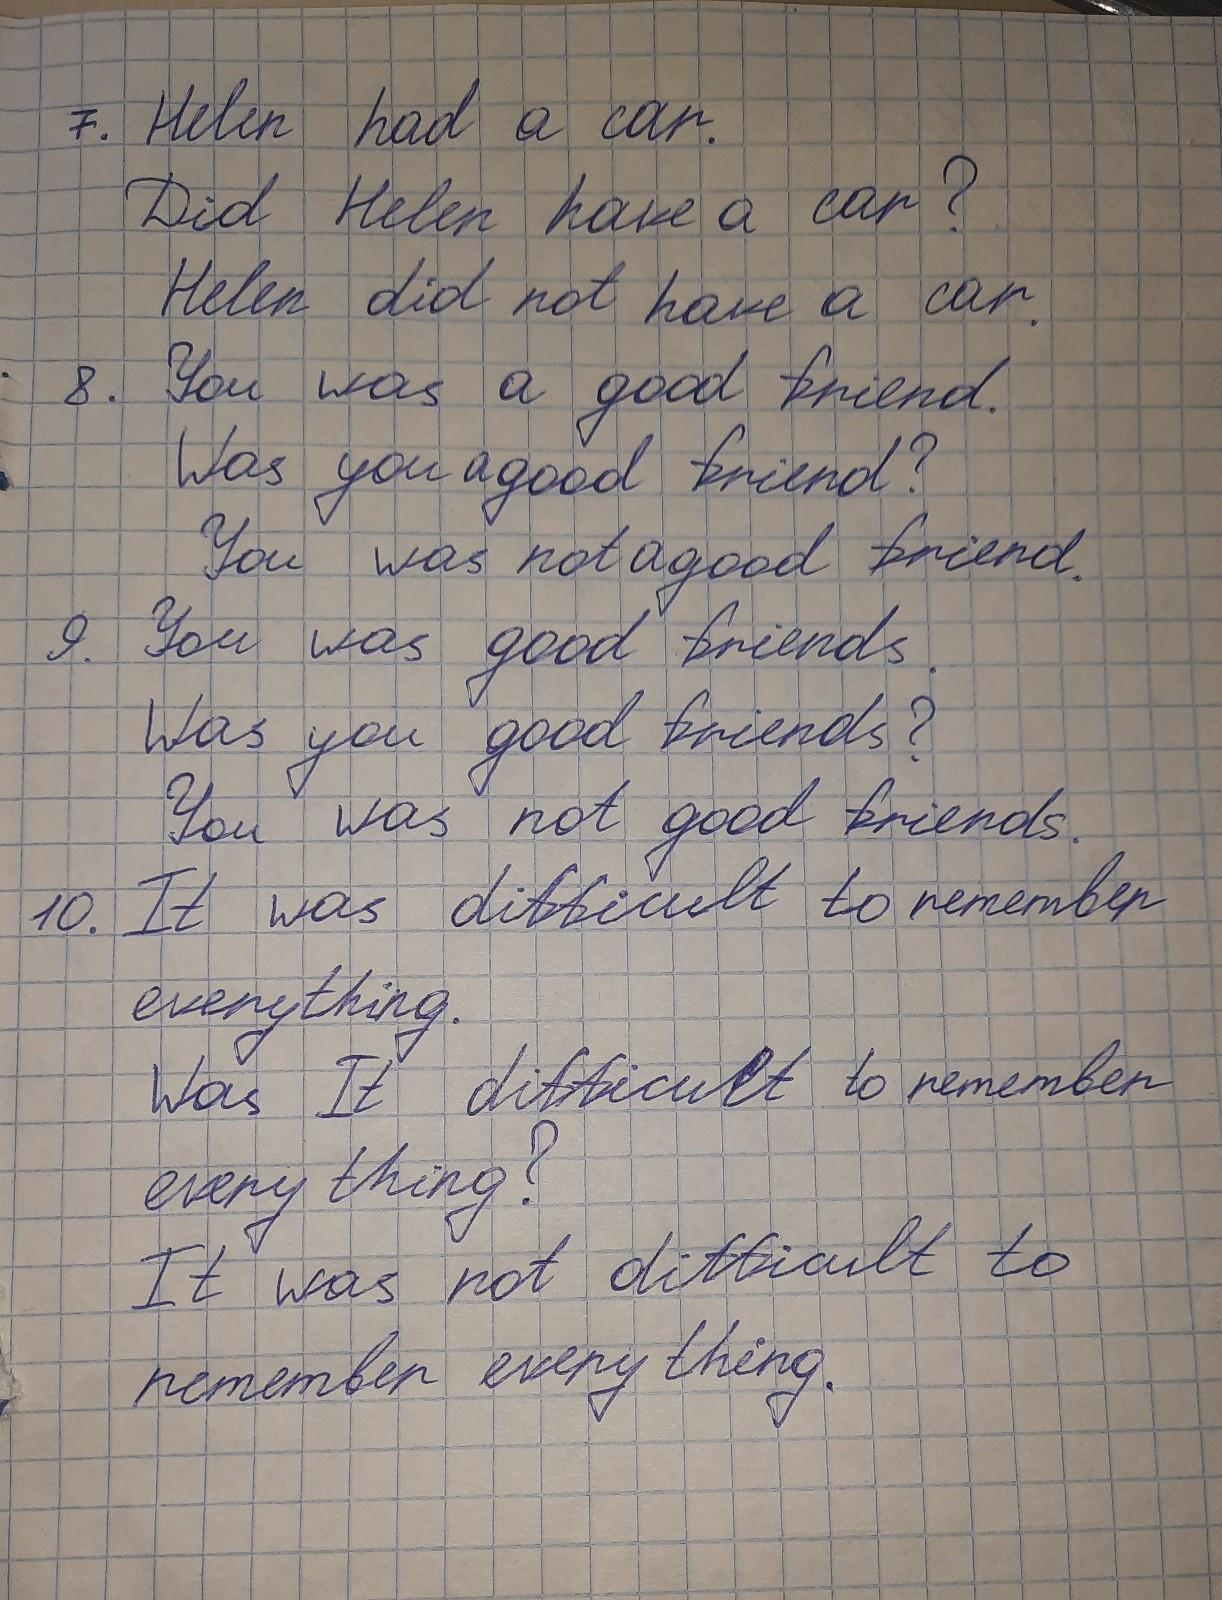 7. Helen had a car.
Did Helen have a car?
Helen did not have a car.
8. You was a good friend.
Was you a good friend?
You was not a good friend.
9. You was good friends.
Was you good friends?
You was not good friends.
10. It was difficult to remember
everything.
Was It difficult to remember
every thing?
It was not difficult to
remember every thing.